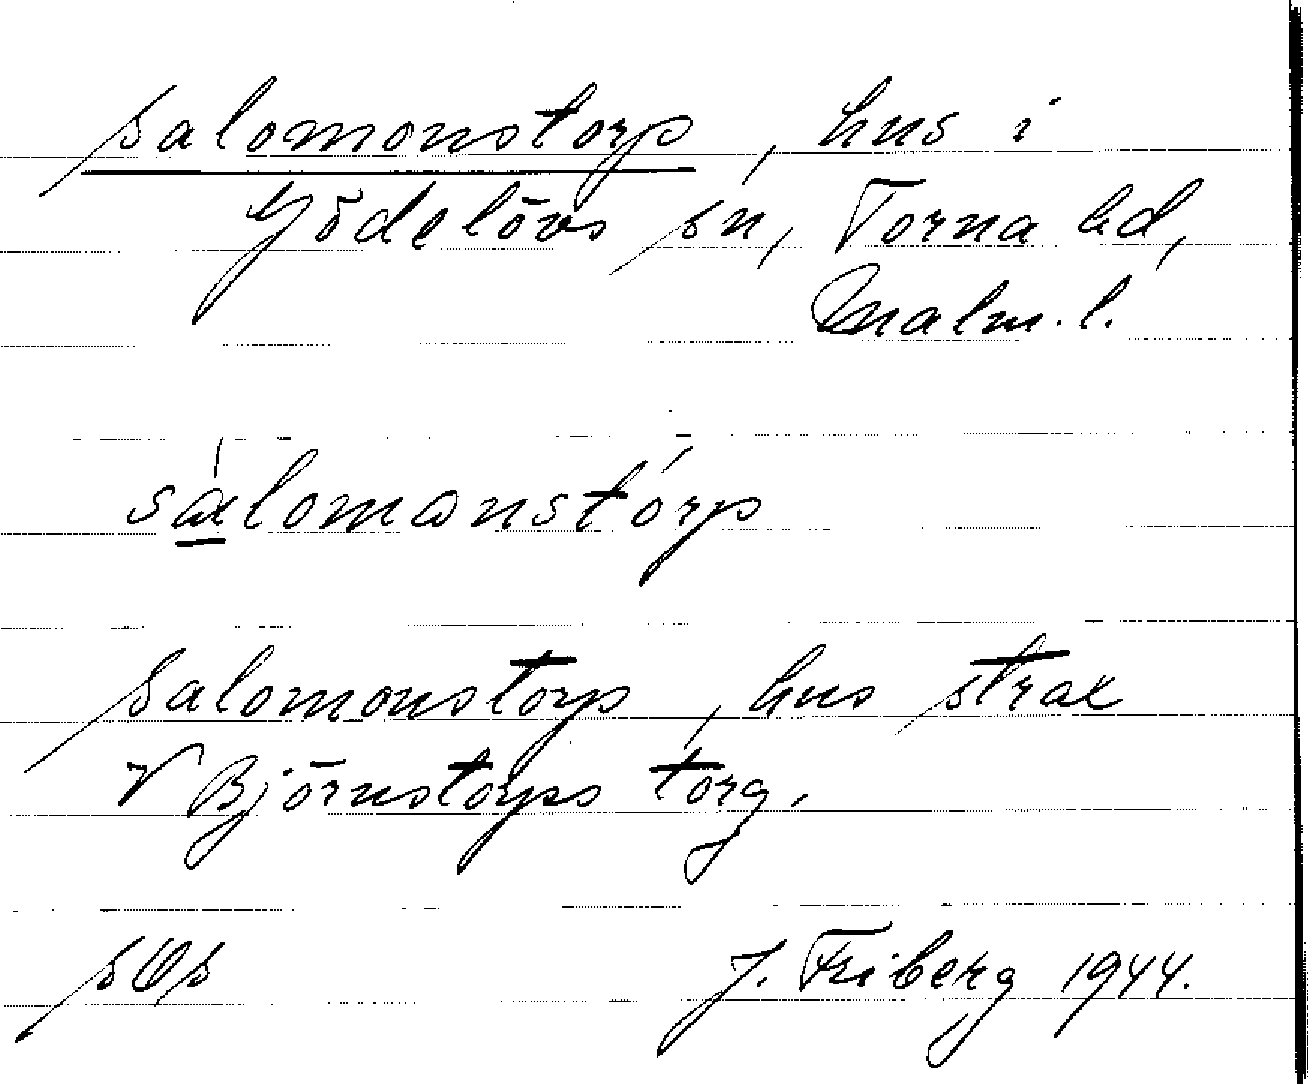 Salomonstorp, hus i
Gödelövs sn, Torna hd,
Malm. l.
sálomonstórp
Salomonstorp, hus strax
V Björnstorps torg.
J. Friberg 1944.